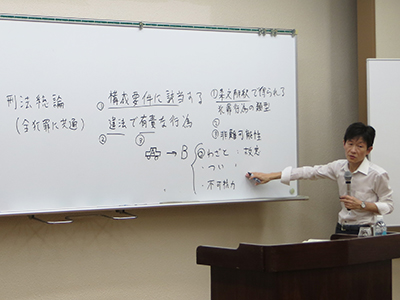 刑法総論
(全犯罪に共通)
① 構成要件に該当する
違法で有責な行為
② ③
A → B
わざと : 故意
・つい :
・不可抗力
①条文解釈で得られる
犯罪行為の類型
②
③非難可能性